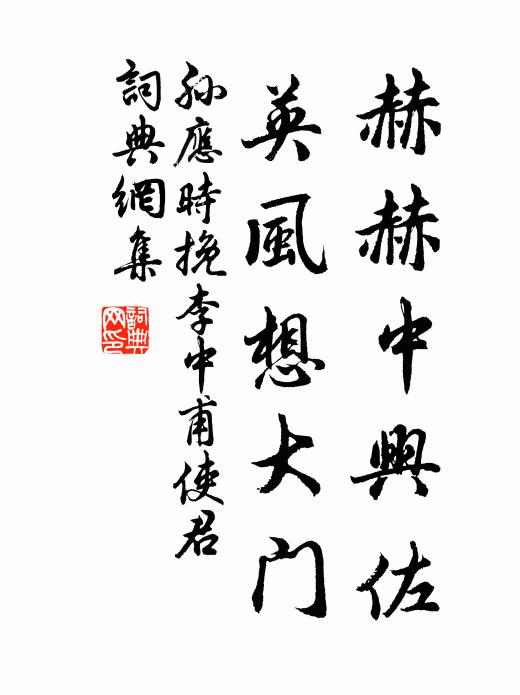 赫赫中興佐
英風想大门
孙應時挽李中甫使君
詞典網集
詞典
网印